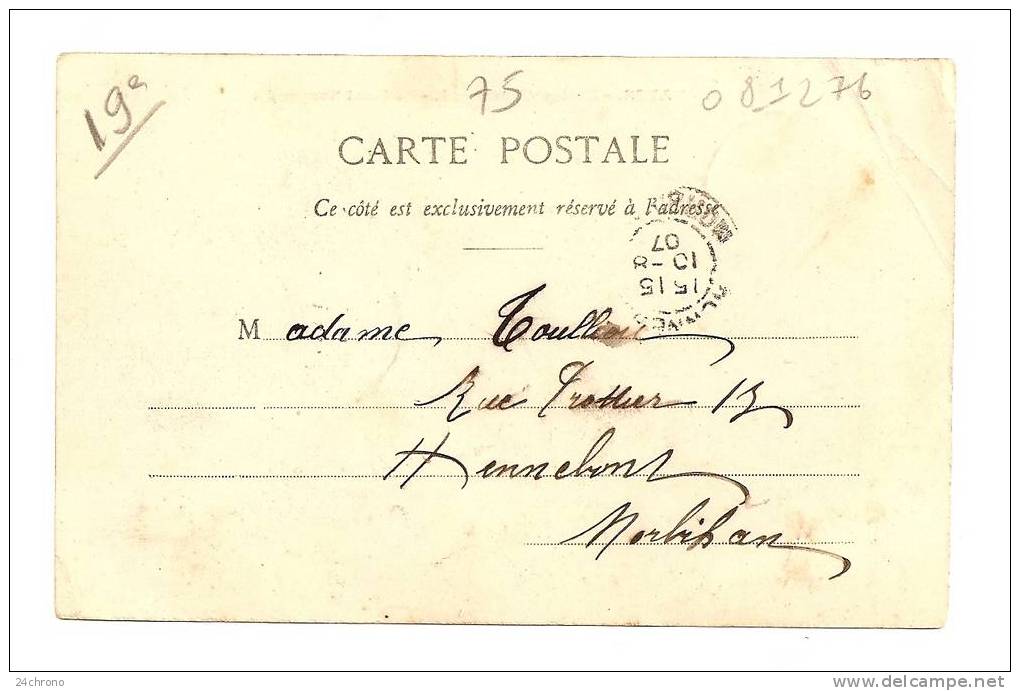 19e
75
081276
CARTE POSTALE
Ce côté est exclusivement réservé à l'adresse
07
10-8
15 15
Madame
Rue Trottier 13
Hennebont
Morbihan
24chrono
www.delcampe.net